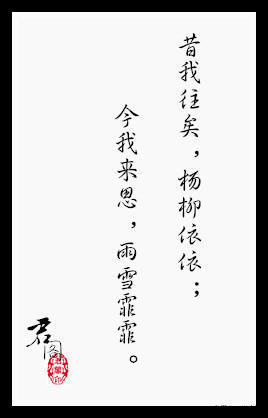 昔我往矣，杨柳依依；
今我来思，雨雪霏霏。
君